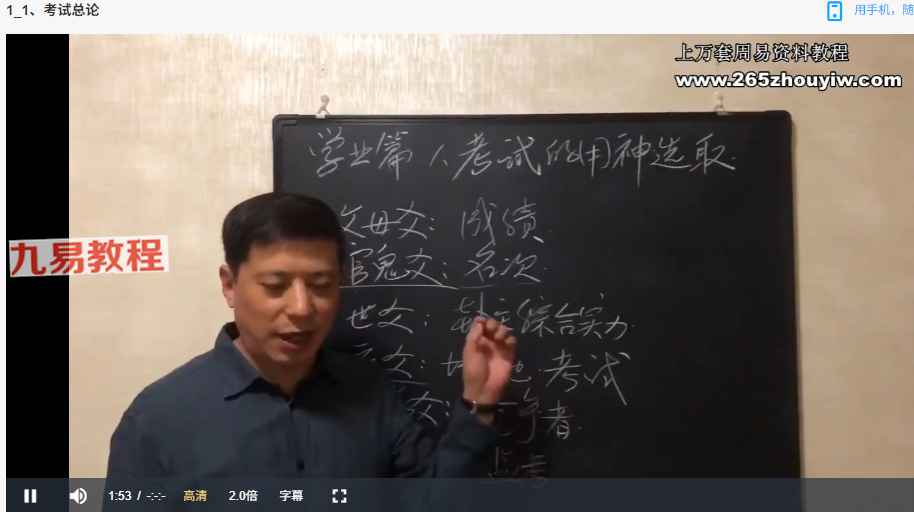 1_1、考试总论
用手机，随
上万套周易资料教程
www.265zhouyiw.com
九易教程
学业篇 1 考试的用神选取
父母爻：成绩
官鬼爻：名次
世爻：卦主综合实力
爻： 考试
爻： 竞争者
监考
1:53 / -:-:- 高清 2.0倍 字幕